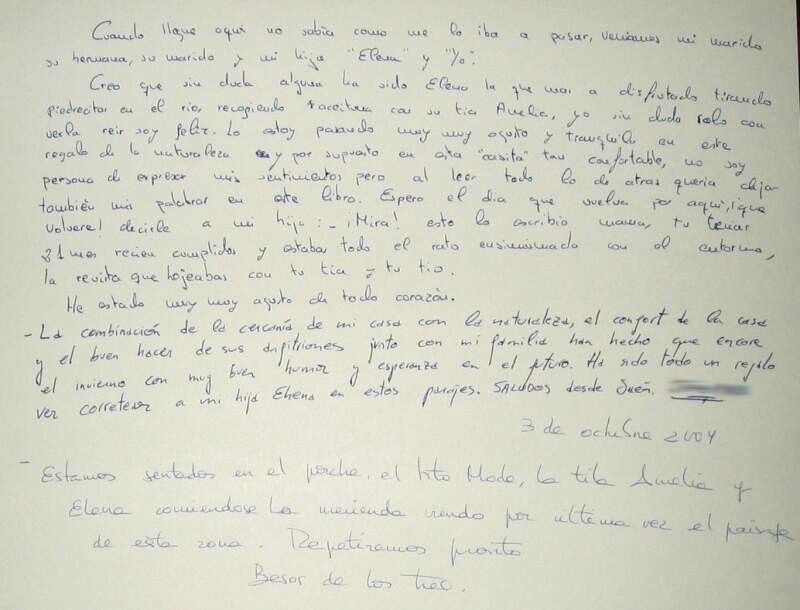 Cuando llegue aqui no sabia como me lo iba a pasar, veniamos mi marido
su hermana, su marido y mi hija "Elena" y "Yo".
Creo que sin duda alguna ha sido Elena la que mas a disfrutado tirando
piedrecitas en el rio, recogiendo aceituna con su tia Amelia, yo sin duda solo con
verla reir soy feliz. Lo estoy pasando muy muy agusto y tranquilo en este
regalo de la naturaleza y por supuesto en esta "casita" tan confortable, no soy
persona de expresar mis sentimientos pero al leer todo lo de atras queria dejar
también mis palabras en este libro. Espero el dia que vuelva por aqui, ¡que
volvere! decirle a mi hija: - ¡Mira! esto lo escribio mama, tu tenias
21 mes recien cumplidos y estabas todo el rato ensimismada con el entorno,
la revista que hojeabas con tu tia y tu tio.
He estado muy muy agusto de todo corazón.
- La combinación de la cercanía de mi casa con la naturaleza, el confort de la casa
y el buen hacer de sus anfitriones junto con mi familia han hecho que encare
el invierno con muy buen humor y esperanza en el futuro. Ha sido todo un regalo
ver corretear a mi hija Elena en estos parajes. SALUDOS desde Jaén.
3 de octubre 2004
- Estamos sentados en el porche, el tito Mode, la tita Amelia y
Elena comiendose la merienda viendo por ultima vez el paisaje
de esta zona. Repetiremos pronto
Besos de los tres.